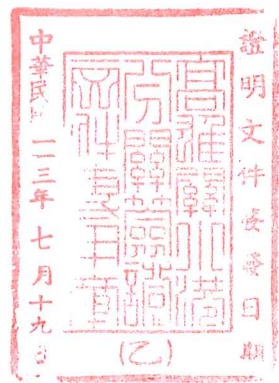 證明文件接受日期
高雄關小港
分關簽證
文件專用章
中華民國 一一三年 七月十九日
(乙)